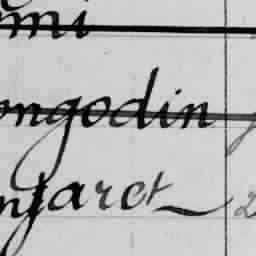 mi
ongodin
njaret